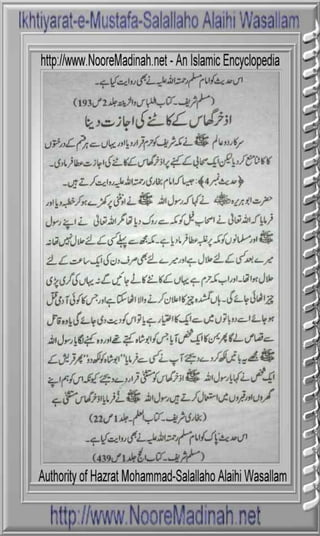 Ikhtiyarat-e-Mustafa-Salallaho Alaihi Wasallam
http://www.NooreMadinah.net - An Islamic Encyclopedia
اس حدیث کو امام مسلم رحمۃ اللہ علیہ نے بھی روایت کیا ہے۔
(مسلم شریف۔ کتاب اللباس والزینۃ جلد 2 ص 193)
اذخر گھاس کے کاٹنے کی اجازت دینا
سرکار دو عالم ﷺ نے مکہ شریف کو حرم قرار دیا اور یہاں سے ہر قسم کے درختوں
کا کاٹنا منع کر دیا لیکن ایک صحابی کے کہنے پر اذخر گھاس کے کاٹنے کی اجازت عطا فرما دی۔
(حدیث نمبر 4): جیسا کہ امام بخاری رحمۃ اللہ علیہ روایت کرتے ہیں۔
حضرت ابو ہریرہ نے کہا کہ رسول اللہ ﷺ نے اونٹنی پر کھڑے ہو کر خطبہ دیا اور
فرمایا کہ اللہ تعالیٰ نے اصحاب فیل کو مکہ سے روک دیا تھا مگر اللہ تعالیٰ نے اپنے رسول
ﷺ اور مسلمانوں کو مکہ پر غلبہ عطا فرمایا ہے۔ مکہ مجھ سے پہلے کسی کے لئے حلال نہیں تھا نہ
میرے بعد کسی کے لئے حلال ہے اور میرے لئے بھی صرف دن کی ایک ساعت کے لئے
حلال ہوا تھا۔ اور اب مکہ حرم ہے یہاں کے کانٹے کاٹے جائیں گے نہ یہاں کی گری پڑی
چیز اٹھائی جائے گی۔ ہاں گمشدہ چیز کا اعلان کرنے والا اٹھا سکتا ہے اور جس کا کوئی آدمی قتل
ہو جائے اسے دو باتوں میں سے ایک کا اختیار ہے یا تو اس کو دیت دی جائے گی یا وہ قاتل
سے قصاص لے گا پھر یمن کا ایک شخص آیا جس کو ابو شاہ کہتے تھے اور وہ کہنے لگا یا رسول اللہ
ﷺ مجھے یہ باتیں لکھ کر دے دیجئے آپ نے کسی سے فرمایا "ابو شاہ کو لکھ دو" پھر قریش کے
ایک شخص نے کہا یا رسول اللہ ﷺ اذخر گھاس کو مستثنیٰ قرار دے دیجئے کیونکہ اس کو ہم اپنے
گھروں اور قبروں میں استعمال کرتے ہیں رسول اللہ ﷺ نے فرمایا اذخر گھاس مستثنیٰ ہے
(بخاری شریف۔ کتاب العلم۔ جلد 1 ص 22)
اس حدیث پاک کو امام مسلم رحمۃ اللہ علیہ نے بھی روایت کیا ہے۔
(مسلم شریف۔ کتاب الحج جلد 1 ص 439)
Authority of Hazrat Mohammad-Salallaho Alaihi Wasallam
http://www.NooreMadinah.net